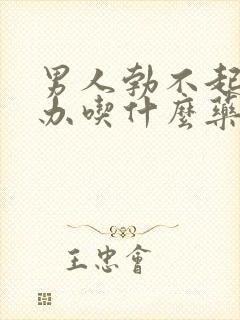 男人勃不起
办喫什麼藥
王忠會